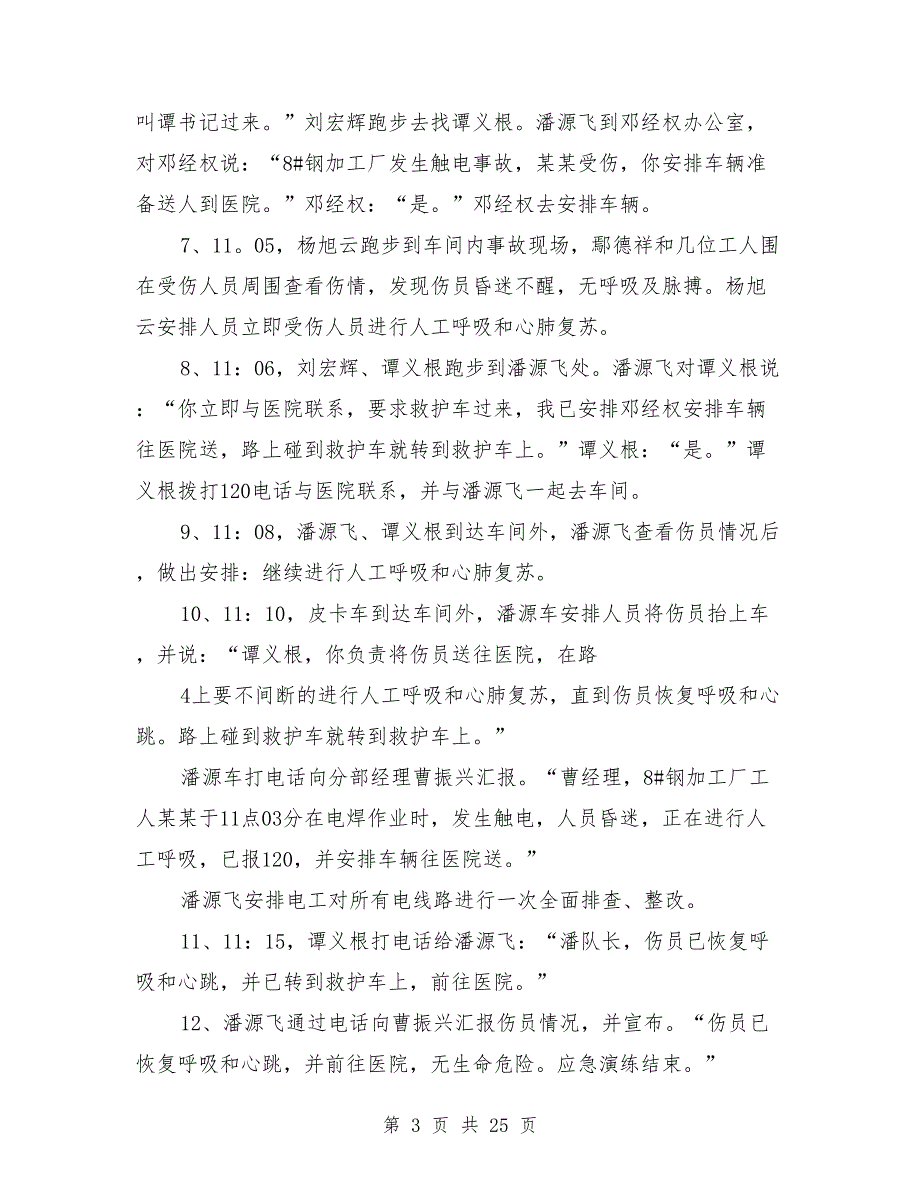 叫谭书记过来。”刘宏辉跑步去找谭义根。潘源飞到邓经权办公室，
对邓经权说：“8#钢加工厂发生触电事故，某某受伤，你安排车辆准
备送人到医院。”邓经权：“是。”邓经权去安排车辆。
7、11。05，杨旭云跑步到车间内事故现场，鄢德祥和几位工人围
在受伤人员周围查看伤情，发现伤员昏迷不醒，无呼吸及脉搏。杨旭
云安排人员立即受伤人员进行人工呼吸和心肺复苏。
8、11：06，刘宏辉、谭义根跑步到潘源飞处。潘源飞对谭义根说
：“你立即与医院联系，要求救护车过来，我已安排邓经权安排车辆
往医院送，路上碰到救护车就转到救护车上。”谭义根：“是。”谭
义根拨打120电话与医院联系，并与潘源飞一起去车间。
9、11：08，潘源飞、谭义根到达车间外，潘源飞查看伤员情况后
，做出安排：继续进行人工呼吸和心肺复苏。
10、11：10，皮卡车到达车间外，潘源车安排人员将伤员抬上车
，并说：“谭义根，你负责将伤员送往医院，在路
4上要不间断的进行人工呼吸和心肺复苏，直到伤员恢复呼吸和心
跳。路上碰到救护车就转到救护车上。”
潘源车打电话向分部经理曹振兴汇报。“曹经理，8#钢加工厂工
人某某于11点03分在电焊作业时，发生触电，人员昏迷，正在进行人
工呼吸，已报120，并安排车辆往医院送。”
潘源飞安排电工对所有电线路进行一次全面排查、整改。
11、11：15，谭义根打电话给潘源飞：“潘队长，伤员已恢复呼
吸和心跳，并已转到救护车上，前往医院。”
12、潘源飞通过电话向曹振兴汇报伤员情况，并宣布。“伤员已
恢复呼吸和心跳，并前往医院，无生命危险。应急演练结束。”
第 3 页 共 25 页